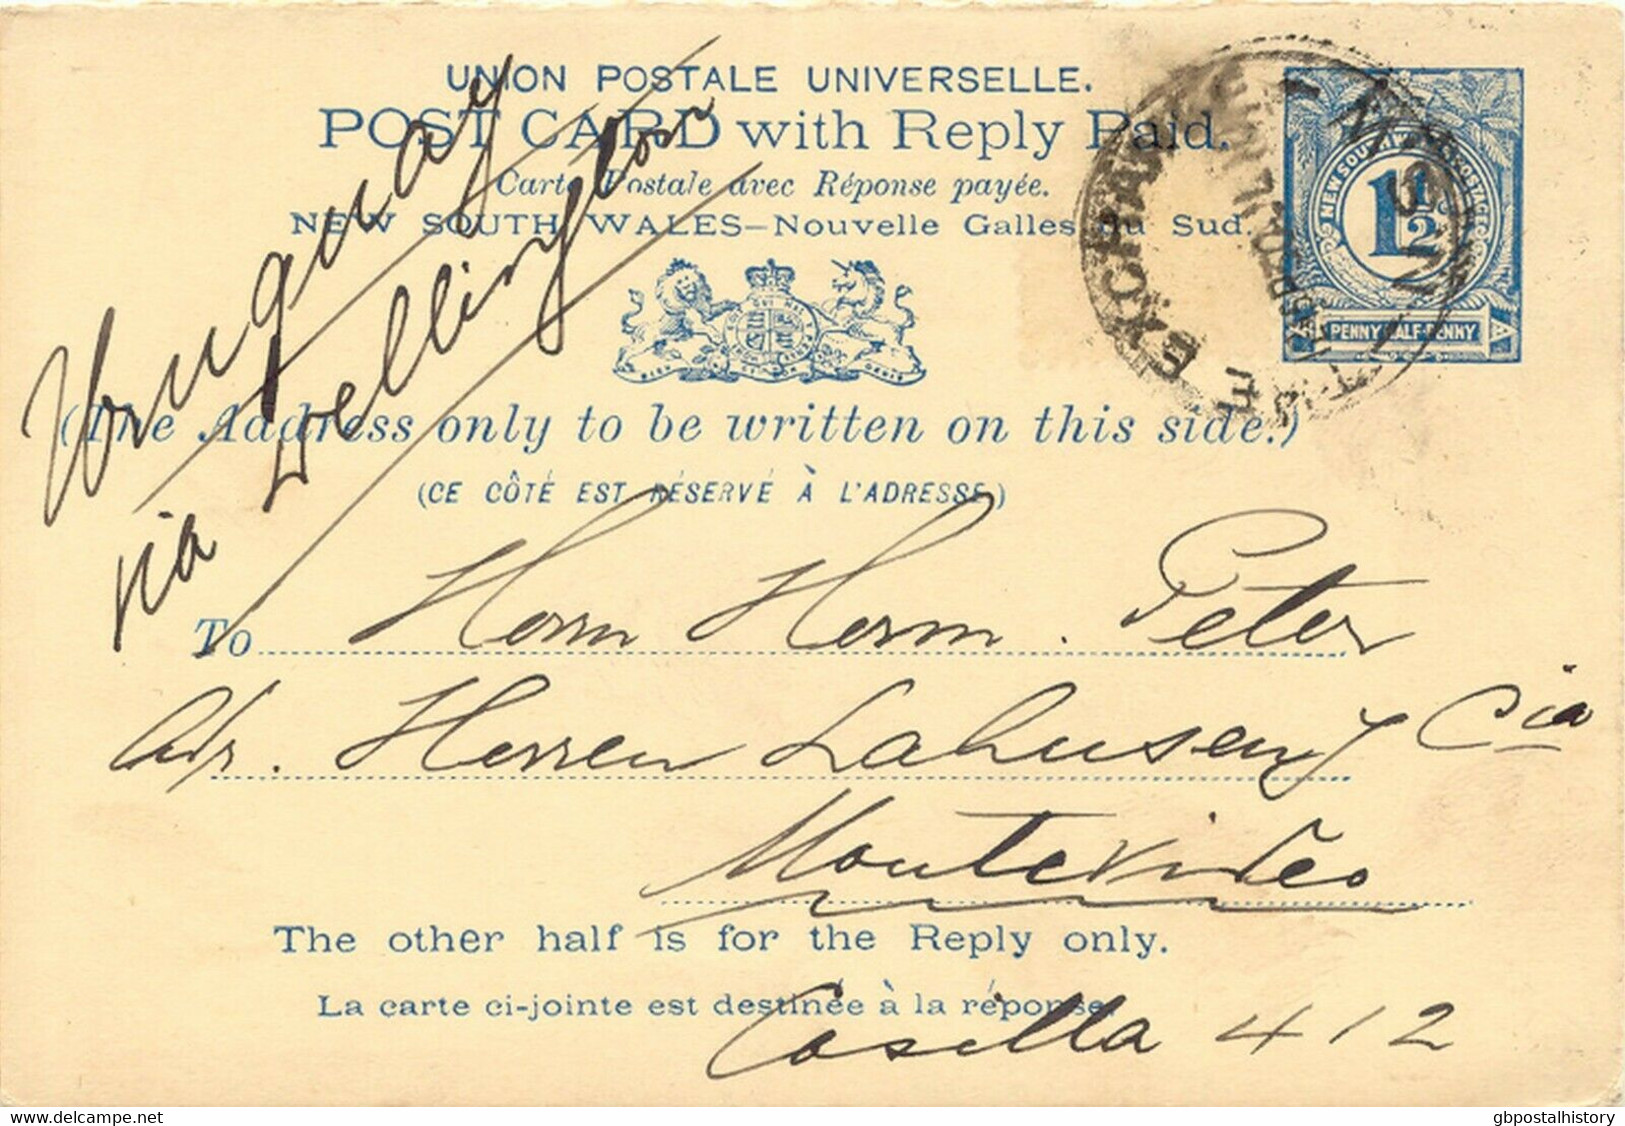 UNION POSTALE UNIVERSELLE.
POST CARD with Reply Paid.
Carte Postale avec Réponse payée.
NEW SOUTH WALES—Nouvelle Galles du Sud.
NEW SOUTH POSTAGE
1½D
PENNY HALF-PENNY
EXCHANGE
N.S.W
Uruguay
via Wellington
(The Address only to be written on this side.)
(CE CÔTÉ EST RÉSERVÉ À L'ADRESSE)
To Herrn Herm. Peter
Adr. Herren Lahusen y Cia
Montevideo
The other half is for the Reply only.
La carte ci-jointe est destinée à la réponse.
Casilla 412
www.delcampe.net
gbpostalhistory